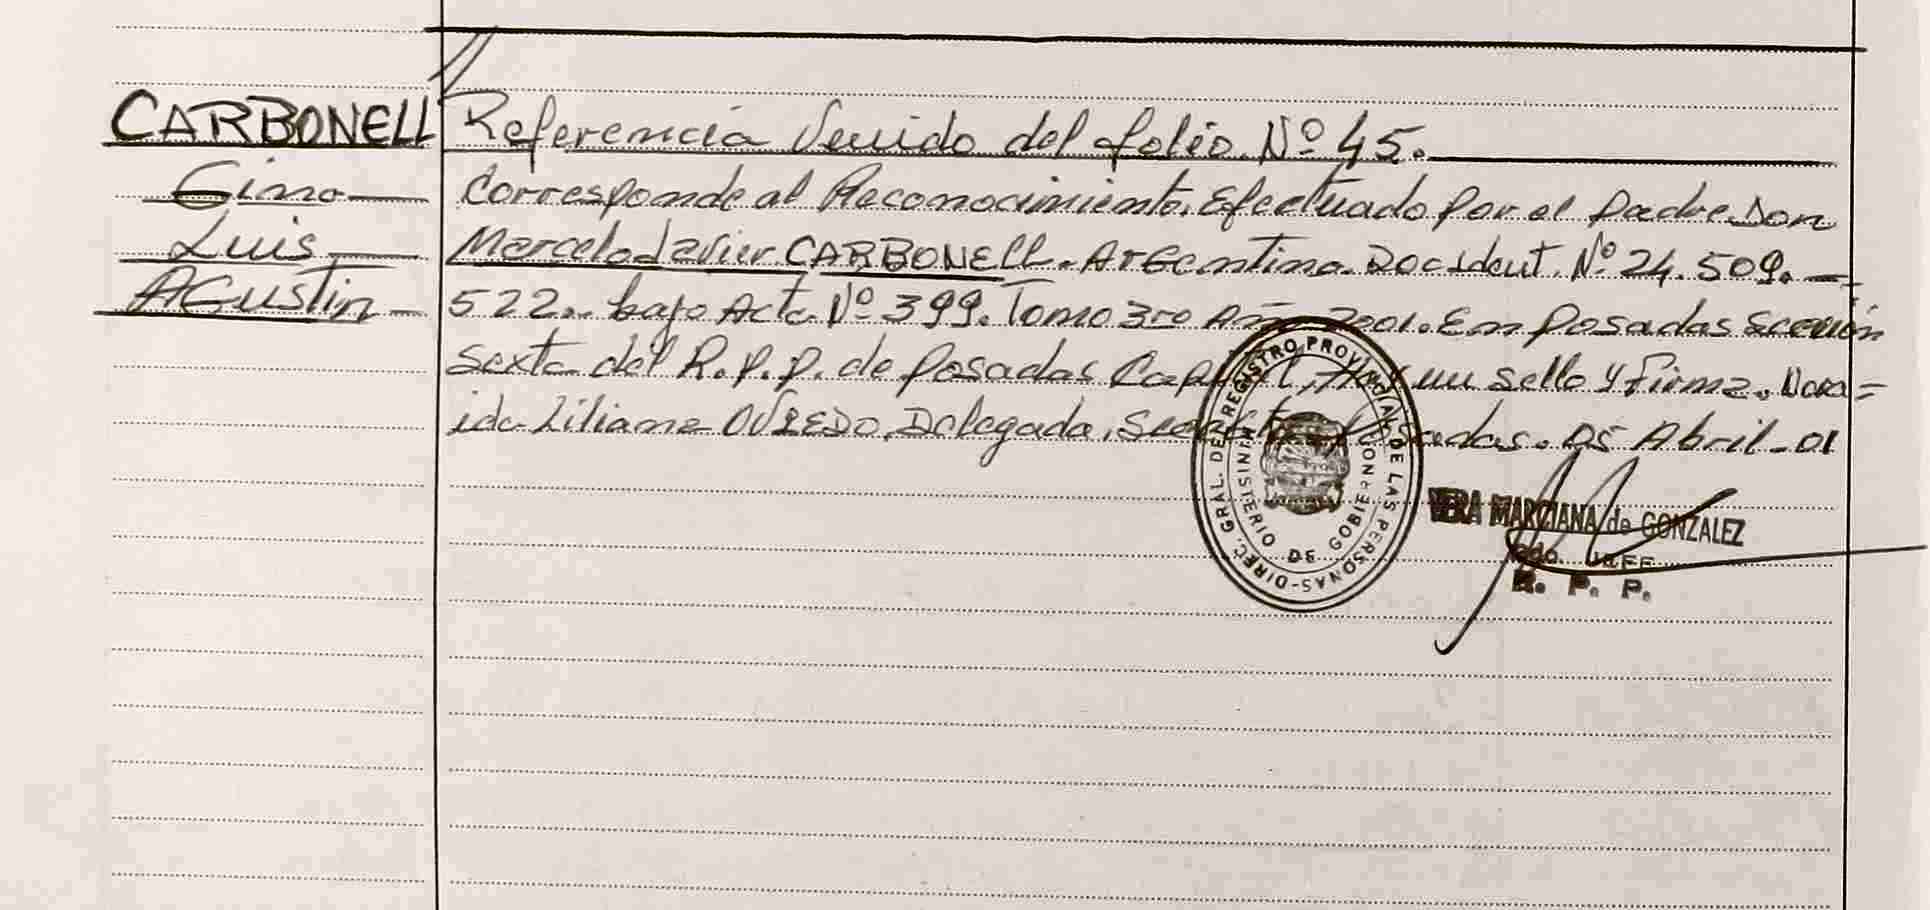 CARBONELL
Gino
Luis
AGustin
Referencia Venido del folio Nº 45.
Corresponde al Reconocimiento. Efectuado por el padre Don
Marcelo Javier CARBONELL. Argentino. Doc. ident. Nº 24.509.-
522. bajo Acta Nº 399. Tomo 3ro Año 2001. En Posadas Sección
Sexta del R.P.P. de Posadas Capital, Hay un Sello y firma.
Liliana OVIEDO. Delegada. Posadas. 05 Abril-01
DIREC. GRAL. DEL REGISTRO PROVINCIAL DE LAS PERSONAS-
MINISTERIO DE GOBIERNO
VERA MARCIANA de GONZALEZ
2do. JEFE
R. P. P.